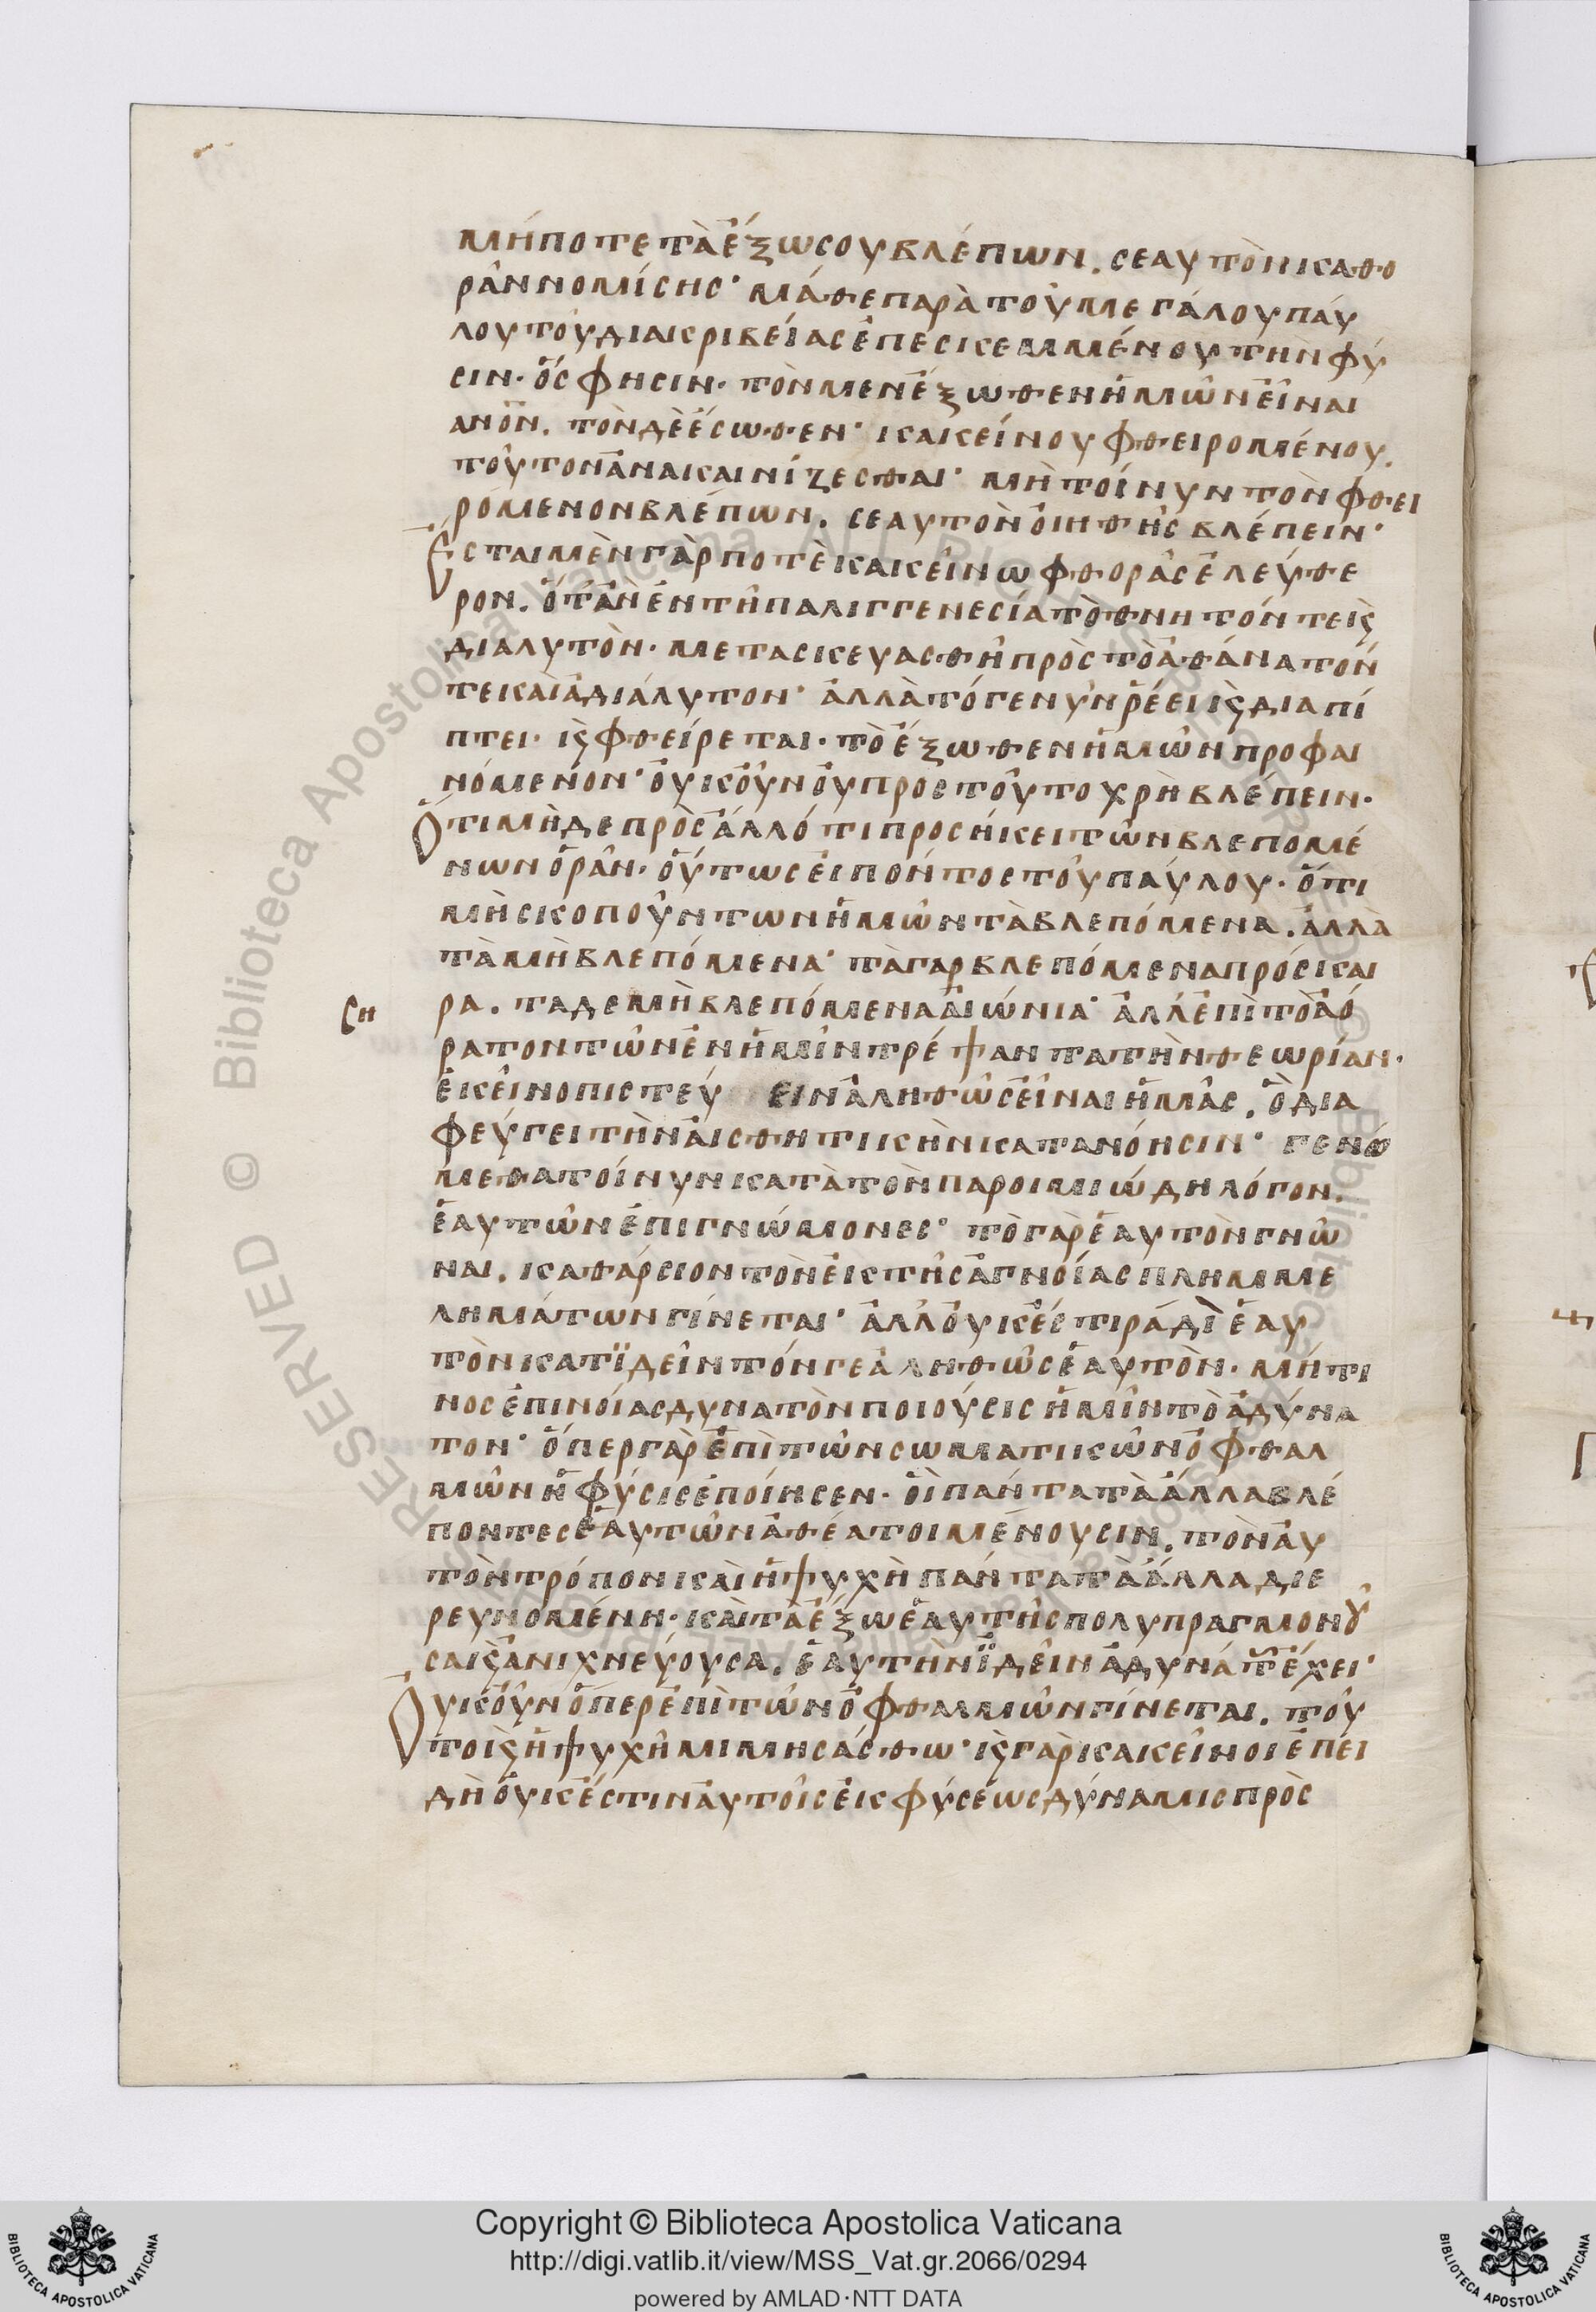 μήποτε τὰ ἔξω σου βλέπων. σεαυτὸν καθο
ρᾶν νομίσης· μάθε παρὰ τοῦ μεγάλου παύ
λου τοῦ δι ακριβείας ἐπεσκεμμένου τὴν φύ
σιν· ὅς φησιν· τὸν μεν ἔξωθεν ἡμῶν εἶναι
ανον. τὸν δὲ ἔσωθεν· κακείνου φθειρομένου.
τοῦτον ἀνακαινίζεσθαι· μὴ τοίνυν τὸν φθει
ρόμενον βλέπων. σεαυτὸν οἰηθῆς βλέπειν·
Ἔσται μὲν γάρ ποτὲ κακεῖνω φθορᾶς ἐλεύθε
ρον. ὅταν ἐν τῆ παλιγγενεσία τὸ θνητόν τε ϗ
διαλυτὸν· μετασκευασθῆ πρὸς τὸ ἀθάνατόν
τε καὶ ἀδιάλυτον· ἀλλὰ τό γε νῦν ῥέει ϗ διαπί
πτει· ϗ φθείρεται· τὸ ἔξωθεν ἡμῶν προφαι
νόμενον· οὐκοῦν οὐ προς τοῦτο χρὴ βλέπειν·
Ὅτι μὴ δε πρὸς ἄλλό τι προσήκει τῶν βλεπομέ
νων ὁρᾶν· οὕτως εἰπόντος τοῦ παύλου· ὅτι
μὴ σκοπούντων ἡμῶν τὰ βλεπόμενα. ἀλλὰ
τὰ μὴ βλεπόμενα· τὰ γαρ βλεπόμενα πρόσκαι
ρα. τα δε μὴ βλεπόμενα αἰώνια· ἀλλ' ἐπὶ τὸ ἀό
ρατον τῶν ἐν ἡμῖν τρέψαντα τὴν θεωρίαν·
ἐκεῖνο πιστεύ ειν ἀληθῶς εἶναι ἡμᾶς. ὃ δια
φεύγει τὴν αἰσθητικὴν κατανόησιν· γενώ
μεθα τοίνυν κατὰ τὸν παροιμιώδη λόγον.
ἑαυτῶν ἐπιγνώμονες· τὸ γὰρ ἑαυτὸν γνῶ
ναι. καθάρσιον τὸν ἐκ τῆς ἀγνοίας πλημμε
λημάτων γίνεται· ἀλλ' οὐκ ἔστι ράδϊ ἑαυ
τὸν κατϊδεῖν τόν γε ἀληθῶς ἑαυτὸν· μή τι
νος ἐπινοίας δυνατὸν ποιούσις ἡμῖν τὸ ἀδύνα
τον· ὅπερ γὰρ ἐπὶ τῶν σωματικῶν ὀφθαλ
μῶν ἡ φύσις ἐποίησεν· οἳ πάντα τὰ ἄλλα βλέ
ποντες ἑαυτῶν ἀθέατοι μένουσιν. τὸν αυ
τὸν τρόπον καὶ ἡ ψυχὴ πάντα τὰ ἄλλα διε
ρευνομένη· καὶ τὰ ἔξω ἑαυτῆς πολυπραγμονȣ͂
σα ϗ ἀνιχνεύουσα. ἑαυτὴν ϊδεῖν ἀδυνάτ ἔχει·
Οὐκοῦν ὅπερ ἐπὶ τῶν ὀφθαλμῶν γίνεται. τοῦ
το ϗ ἡ ψυχῆ μιμησάσθω· ϗ γὰρ κακεῖνοι ἐπει
δὴ οὐκ ἔστιν αυτοῖς ἐκ φύσεως δύναμις πρὸς
ση
Copyright © Biblioteca Apostolica Vaticana
http://digi.vatlib.it/view/MSS_Vat.gr.2066/0294
powered by AMLAD·NTT DATA
BIBLIOTECA APOSTOLICA VATICANA
BIBLIOTECA APOSTOLICA VATICANA